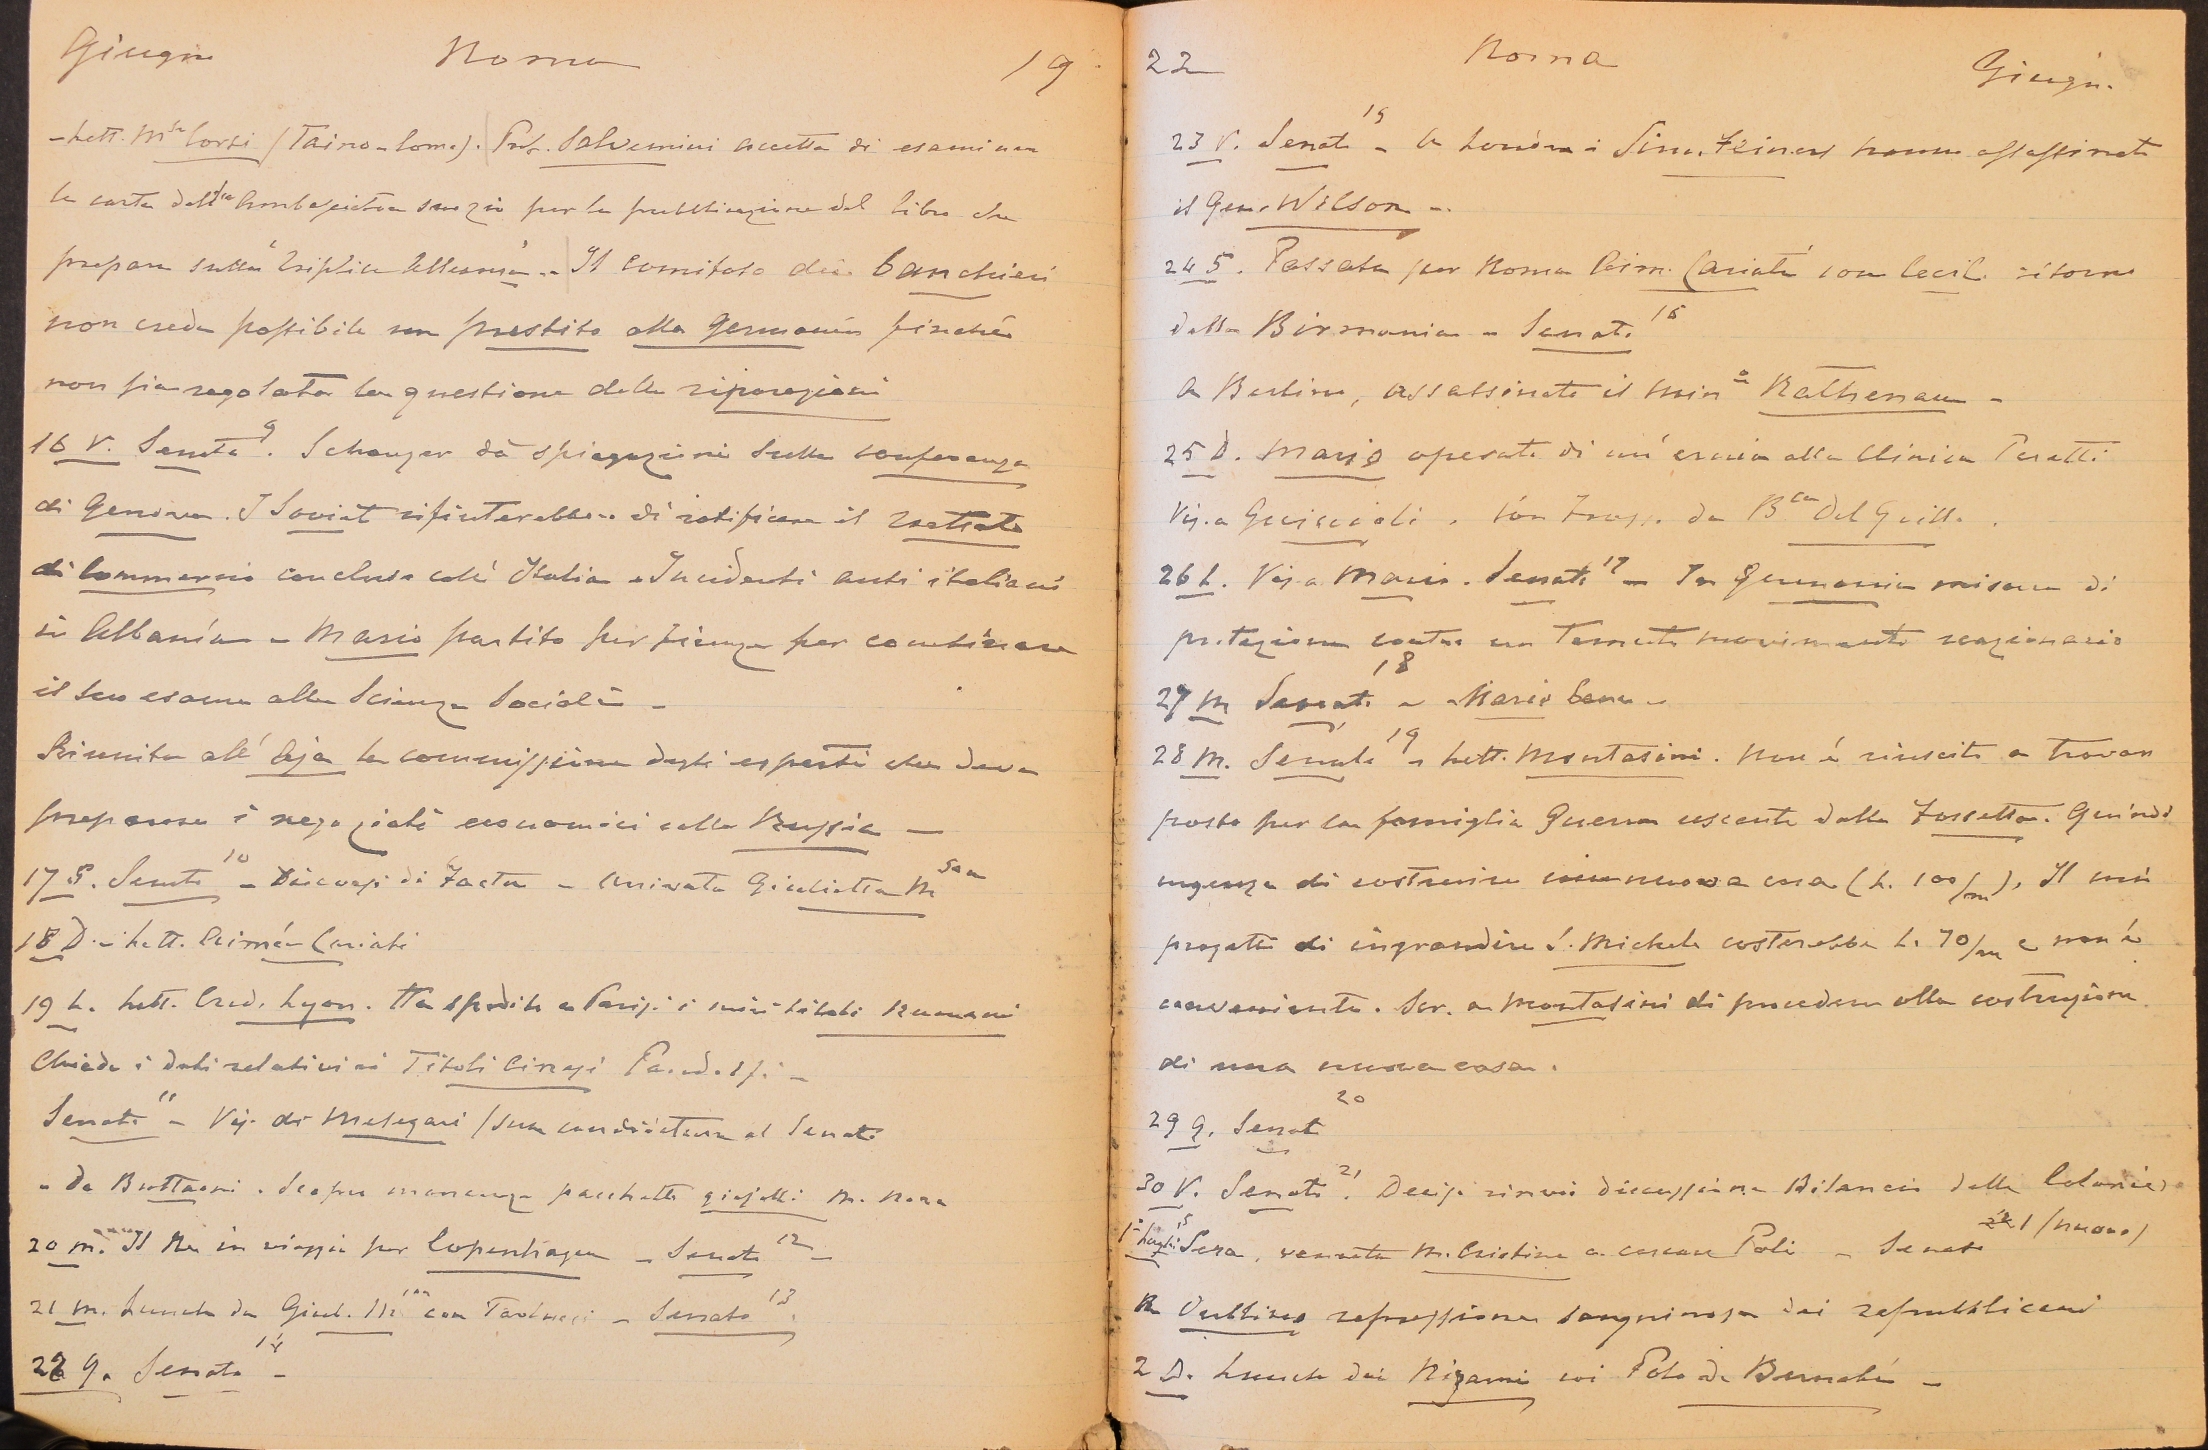 Giugno Roma 19
- Lett. Mse Corsi (Taino - Como). Prof. Salvemini accetta di esaminare
le carte dell'ambasciatore svizio per la pubblicazione del libro che
prepara sulla "Triplice Alleanza" - Il comitato dei banchieri
non crede possibile un prestito alla Germania finché
non sia regolata la questione delle riparazioni
16 V. Senato 9. Schanzer dà spiegazioni sulla conferenza
di Genova. I Soviet rifiuterebbero di ratificare il trattato
di Commercio concluso coll'Italia - Incidenti anti italiani
in Albania - Mario partito per Firenze per combinare
il suo esame alle Scienze Sociali -
Riunita all'Aja la commissione degli esperti che deve
preparare i negoziati economici colla Russia -
17 S. Senato 10 - Discorso di Facta - Arrivata Giulietta M
18 D. - Lett. Aimée Cariati
19 L. Lett. Cred. Lyon. Ha spedito a Parigi i miei titoli Rumeni
Chiede i dati relativi ai Titoli Cinesi
Senato 11 - Vis. di Melegari (sua candidatura al Senato
- Da . Scopre mancanza pacchetto gioielli M.
20 M. Il Re in viaggio per Copenhagen - Senato 12 -
21 M. Lunch da Giul. con - Senato 13.
22 G. Senato 14 -
22 Roma Giugn.
23 V. Senato 15 - A Londra i Sinn. Feiners hanno assassinato
il Gen. Wilson -.
24 S. Passata per Roma Aim. Cariati con Cecil. ritorno
dalla Birmania - Senato 16
A Berlino, assassinato il Mino Rathenau -
25 D. Mario operato di un'ernia alla Clinica
Vis. a Guiccioli. da Bssa Del Grillo.
26 L. Vis a Mario. Senato 17 - In Germania misure di
protezione contro un temuto movimento reazionario
27 M Senato 18 - Mario bene -
28 M. Senato 19 - Lett. Montasini. Non è riuscito a trovare
posto per la famiglia Guerra uscente dalla Fossetta. Quindi
urgenza di costruire una nuova casa (L. 100/m). Il mio
progetto di ingrandire S. Michele costerebbe L. 70/m e non è
conveniente. Scr. a Montasini di procedere alla costruzione
di una nuova casa.
29 G. Senato 20
30 V. Senato 21. Decisi rinvii discussione Bilancio delle Colonie
1º Luglio S Sera, venuta M. Cristina a cercare Poli - Senato 1 (nuovo)
A Dublino repressione sanguinosa dei repubblicani
2 D. Lunch dai coi